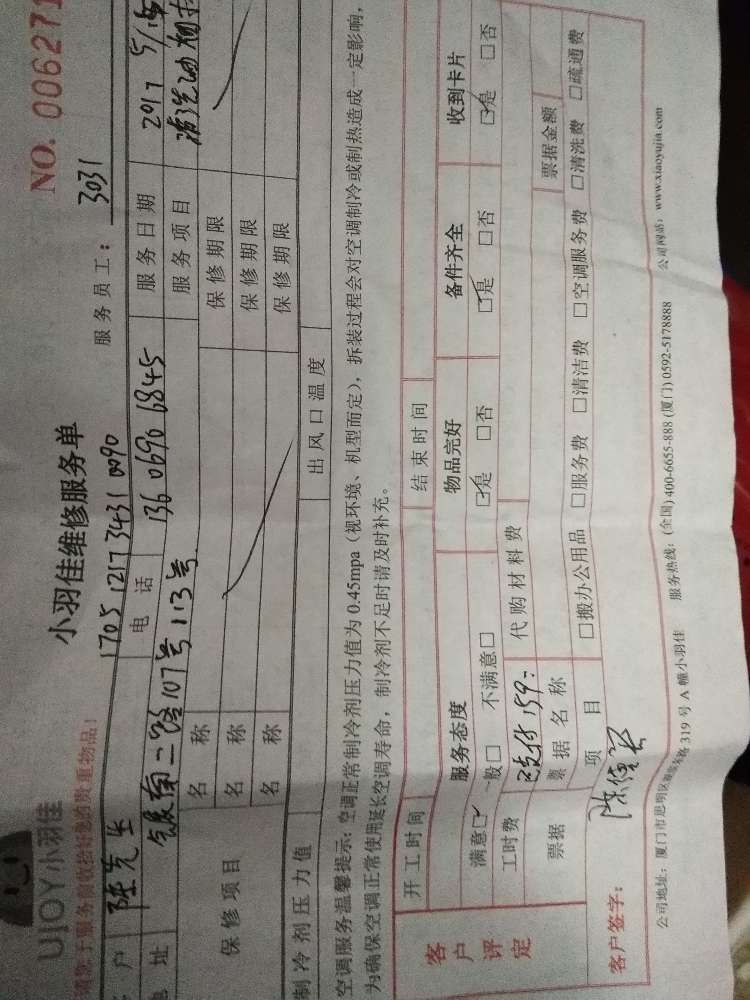 UJOY小羽佳
小羽佳维修服务单
NO. 006271
请您于服务前收拾好您的贵重物品!
1705 1217 3431 0090
服务员工: 3031
户 陈先生
电话 136 0690 6845
服务日期 2017 5/
地址 南二路107号113号
服务项目 清洗油烟
保修项目
名称 保修期限
名称 保修期限
名称 保修期限
制冷剂压力值
出风口温度
空调服务温馨提示: 空调正常制冷剂压力值为 0.45mpa (视环境、机型而定), 拆装过程会对空调制冷或制热造成一定影响,
为确保空调正常使用延长空调寿命, 制冷剂不足时请及时补充。
客户评定
开工时间
结束时间
服务态度
物品完好
备件齐全
收到卡片
满意☑ 一般□ 不满意□
☑是 □否
☑是 □否
☑是 □否
工时费 已支付159
代购材料费
票据
票据名称
票据金额
项目
□搬办公用品 □服务费 □清洁费 □空调服务费 □清洗费 □疏通费
客户签字:
公司地址: 厦门市思明区 319 号 A 幢小羽佳 服务热线: (全国) 400-6655-888 (厦门) 0592-5178888 公司网站: www.xiaoyujia.com